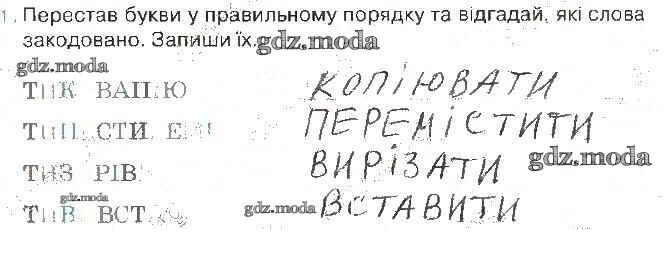 1. Перестав букви у правильному порядку та відгадай, які слова
закодовано. Запиши їх. gdz.moda
gdz.moda
КОПІЮВАТИ
ПЕРЕМІСТИТИ
ВИРІЗАТИ gdz.moda
gdz.moda
gdz.moda ВСТАВИТИ